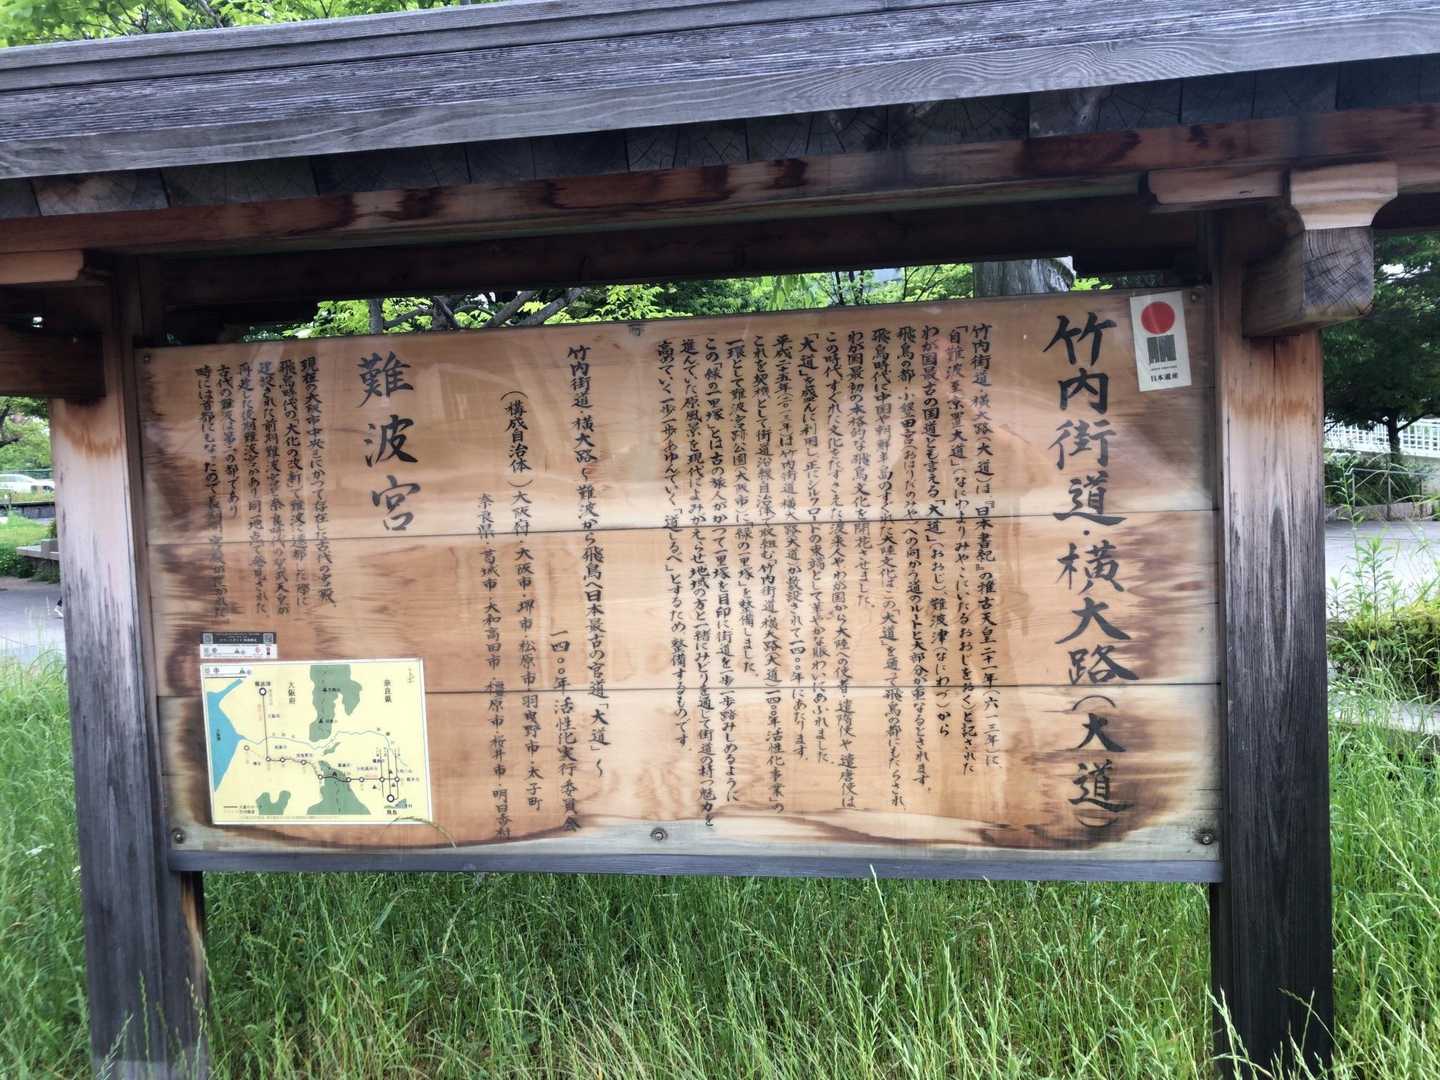 日本遺産
竹内街道・横大路(大道)
竹内街道・横大路(大道)は『日本書紀』の推古天皇二十一年(六一三年)に
「自難波至京置大道」(なにわよりみやこにいたるおおじをおく)と記された
わが国最古の国道とも言える「大道」(おおじ)、難波津(なにわづ)から
飛鳥の都・小墾田宮(おはりだのみや)への向かう道のルートと大部分が重なるとされます。
飛鳥時代に中国や朝鮮半島のすぐれた大陸文化はこの「大道」を通って飛鳥の都にもたらされ、
わが国最初の本格的な飛鳥文化を開花させました。
この時代、すぐれた文化をたずさえた渡来人や、わが国から大陸への使者・遣隋使や遣唐使は
「大道」を盛んに利用し、正にシルクロードの東端として華やかな賑わいにあふれました。
平成二十五年(二〇一三年)は竹内街道・横大路(大道)が敷設されて一四〇〇年にあたります。
これを契機として街道沿線自治体で取組む「竹内街道・横大路(大道)一四〇〇年活性化事業」の
一環として難波宮跡公園(大阪市)に「緑の一里塚」を整備しました。
この「緑の一里塚」とは、古の旅人がかつて一里塚を目印に街道を一歩一歩踏みしめるように
進んでいた原風景を現代によみがえらせ、地域の方と一緒にみどりを通して街道の持つ魅力を
高めていく一歩一歩をあゆんでいく「道しるべ」とするため、整備するものです。
竹内街道・横大路〜難波から飛鳥へ日本最古の官道「大道」〜
一四〇〇年活性化実行委員会
(構成自治体)大阪府・大阪市・堺市・松原市・羽曳野市・太子町
奈良県・葛城市・大和高田市・橿原市・桜井市・明日香村
難波宮
現在の大阪市中央区にかつて存在した古代の宮殿。
飛鳥時代の「大化の改新」で難波に遷都した際に
建設された前期難波宮と奈良時代の聖武天皇が
再建した後期難波宮があり同一地点で発見された
古代の難波は第一の都であり
時には首都にもなったので
大阪府
奈良県